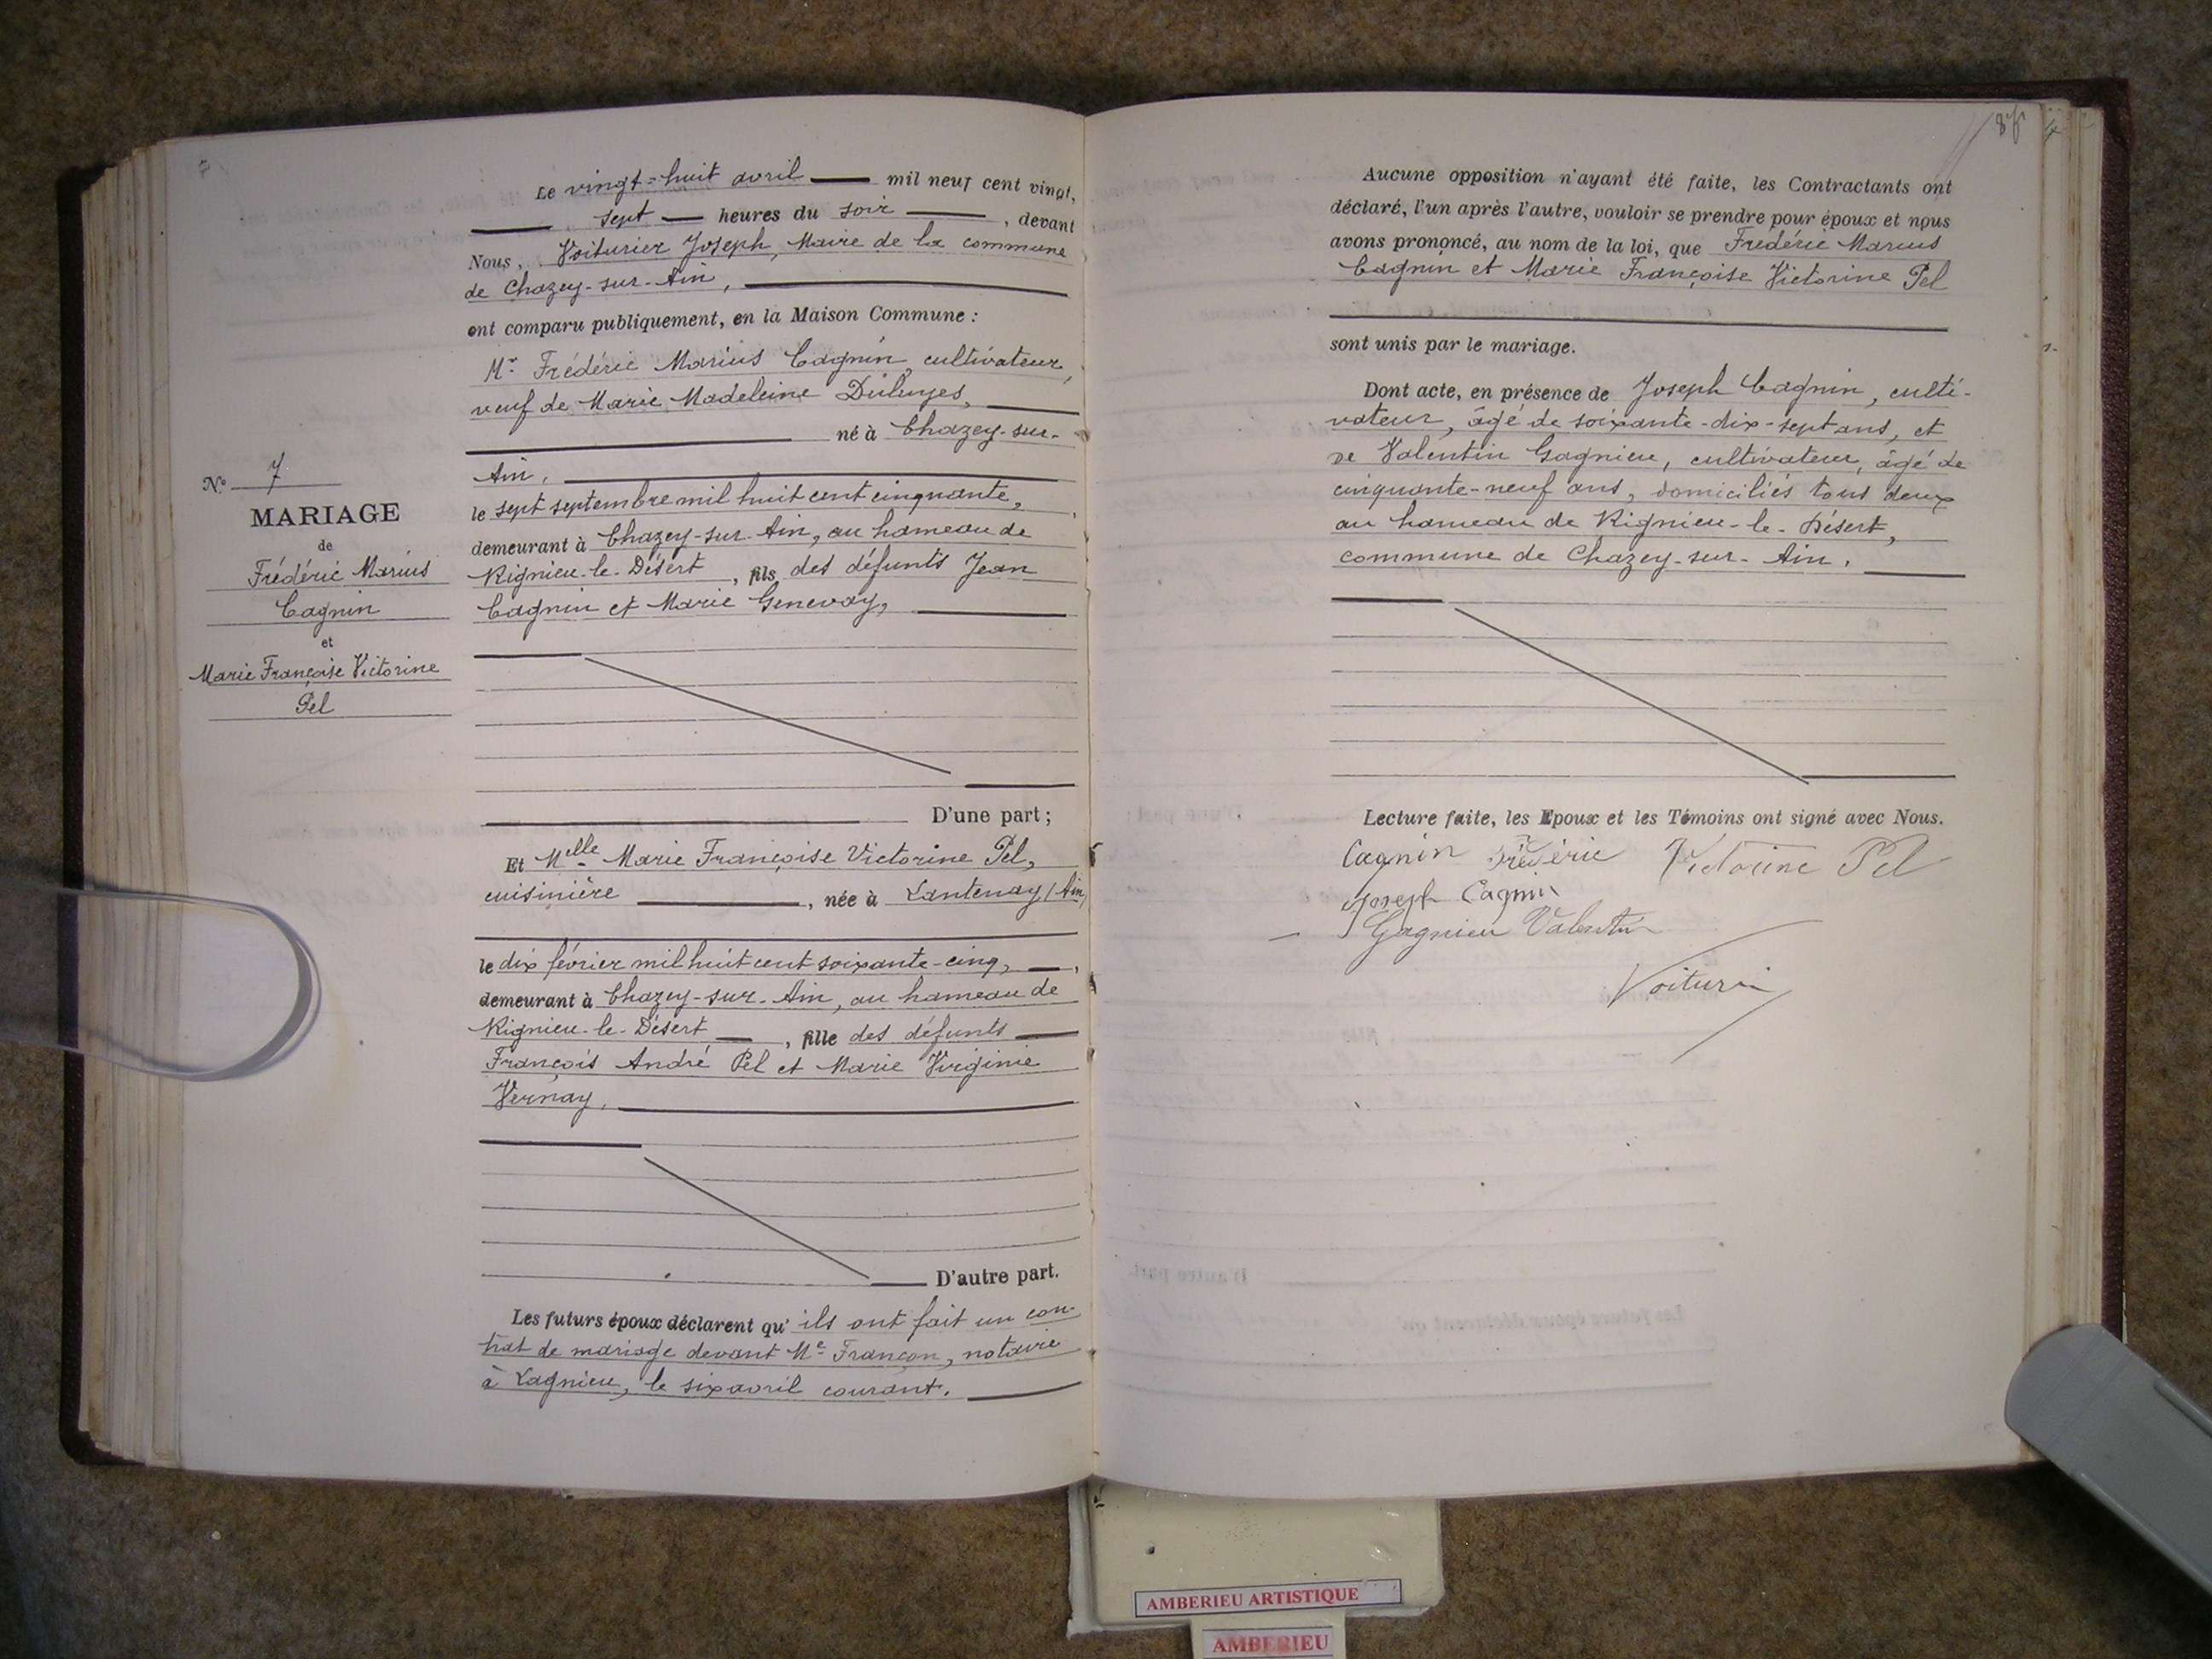 Le vingt-huit avril mil neuf cent vingt,
sept heures du soir, devant
Nous, Voiturier Joseph, Maire de la commune
de Chazey-sur-Ain,
ont comparu publiquement, en la Maison Commune :
Mr Frédéric Marius Cagnin, cultivateur,
veuf de Marie Madeleine
né à Chazey-sur-
Ain,
le sept septembre mil huit cent cinquante,
demeurant à Chazey-sur-Ain, au hameau de
Rignieu-le-Désert, fils des défunts Jean
Cagnin et Marie Genevay,
D'une part ;
N° 7
MARIAGE
de
Frédéric Marius
Cagnin
et
Marie Françoise Victorine
Pel
Et Melle Marie Françoise Victorine Pel,
cuisinière, née à Lantenay (Ain)
le dix février mil huit cent soixante-cinq,
demeurant à Chazey-sur-Ain, au hameau de
Rignieu-le-Désert, fille des défunts
François André Pel et Marie Virginie
Vernay,
D'autre part.
Les futurs époux déclarent qu'ils ont fait un con-
trat de mariage devant Me Françon, notaire
à Lagnieu, le six avril courant.
Aucune opposition n'ayant été faite, les Contractants ont
déclaré, l'un après l'autre, vouloir se prendre pour époux et nous
avons prononcé, au nom de la loi, que Frédéric Marius
Cagnin et Marie Françoise Victorine Pel
sont unis par le mariage.
Dont acte, en présence de Joseph Cagnin, culti-
vateur, âgé de soixante-dix-sept ans, et
de Valentin Gagnieu, cultivateur, âgé de
cinquante-neuf ans, domiciliés tous deux
au hameau de Rignieu-le-Désert,
commune de Chazey-sur-Ain.
Lecture faite, les Epoux et les Témoins ont signé avec Nous.
Cagnin Frédéric Victorine Pel
Joseph Cagnin
Gagnieu Valentin
Voiturier
AMBERIEU ARTISTIQUE
AMBERIEU